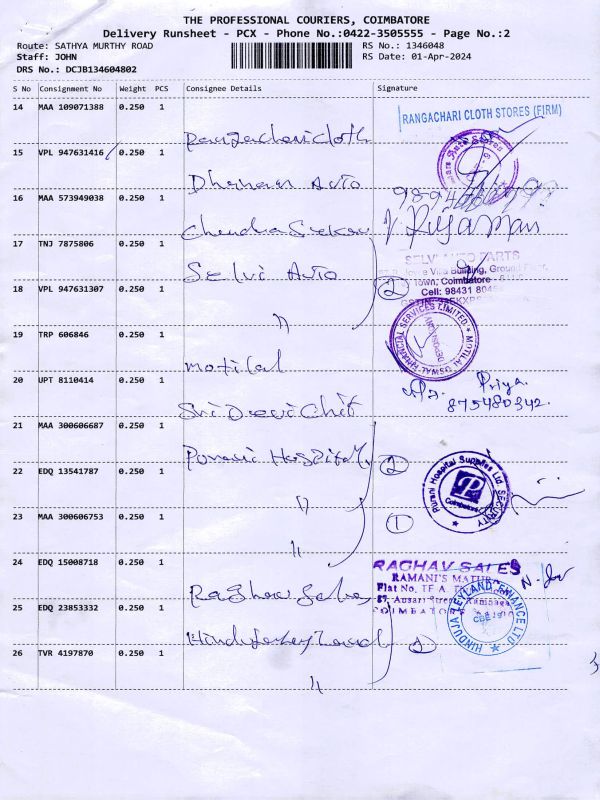 THE PROFESSIONAL COURIERS, COIMBATORE
Delivery Runsheet - PCX - Phone No.:0422-3505555 - Page No.:2
Route: SATHYA MURTHY ROAD
RS No.: 1346048
Staff: JOHN
RS Date: 01-Apr-2024
DRS No.: DCJB134604802
S No Consignment No Weight PCS Consignee Details Signature
14 MAA 109071388 0.250 1
RANGACHARI CLOTH STORES (FIRM)
Rangachari cloth
15 VPL 947631416 0.250 1
Dhanam Auto
16 MAA 573949038 0.250 1
Chandra Sekar
17 TNJ 7875806 0.250 1
Selvi Auto
SELVI AUTO PARTS
Building, Ground
Town, Coimbatore
Cell: 98431
2
18 VPL 947631307 0.250 1
"
19 TRP 606846 0.250 1
motilal
MOTILAL OSWAL FINANCIAL SERVICES LIMITED
20 UPT 8110414 0.250 1
Sri Devi Chit
Priya.
875480342.
21 MAA 300606687 0.250 1
Purani Hospital
2
22 EDQ 13541787 0.250 1
"
Purani Hospital Supplies Ltd
Coimbatore
SECURITY
23 MAA 300606753 0.250 1
"
1
24 EDQ 15008718 0.250 1
Raghav Sales
RAGHAV SALES
RAMANI'S
Flat No. 1F A
87, Ansari Street, Ramnagar
COIMBATO
25 EDQ 23853332 0.250 1
Hinduja Leyland
HINDUJA LEYLAND FINANCE LTD
CBE
2
26 TVR 4197870 0.250 1
"